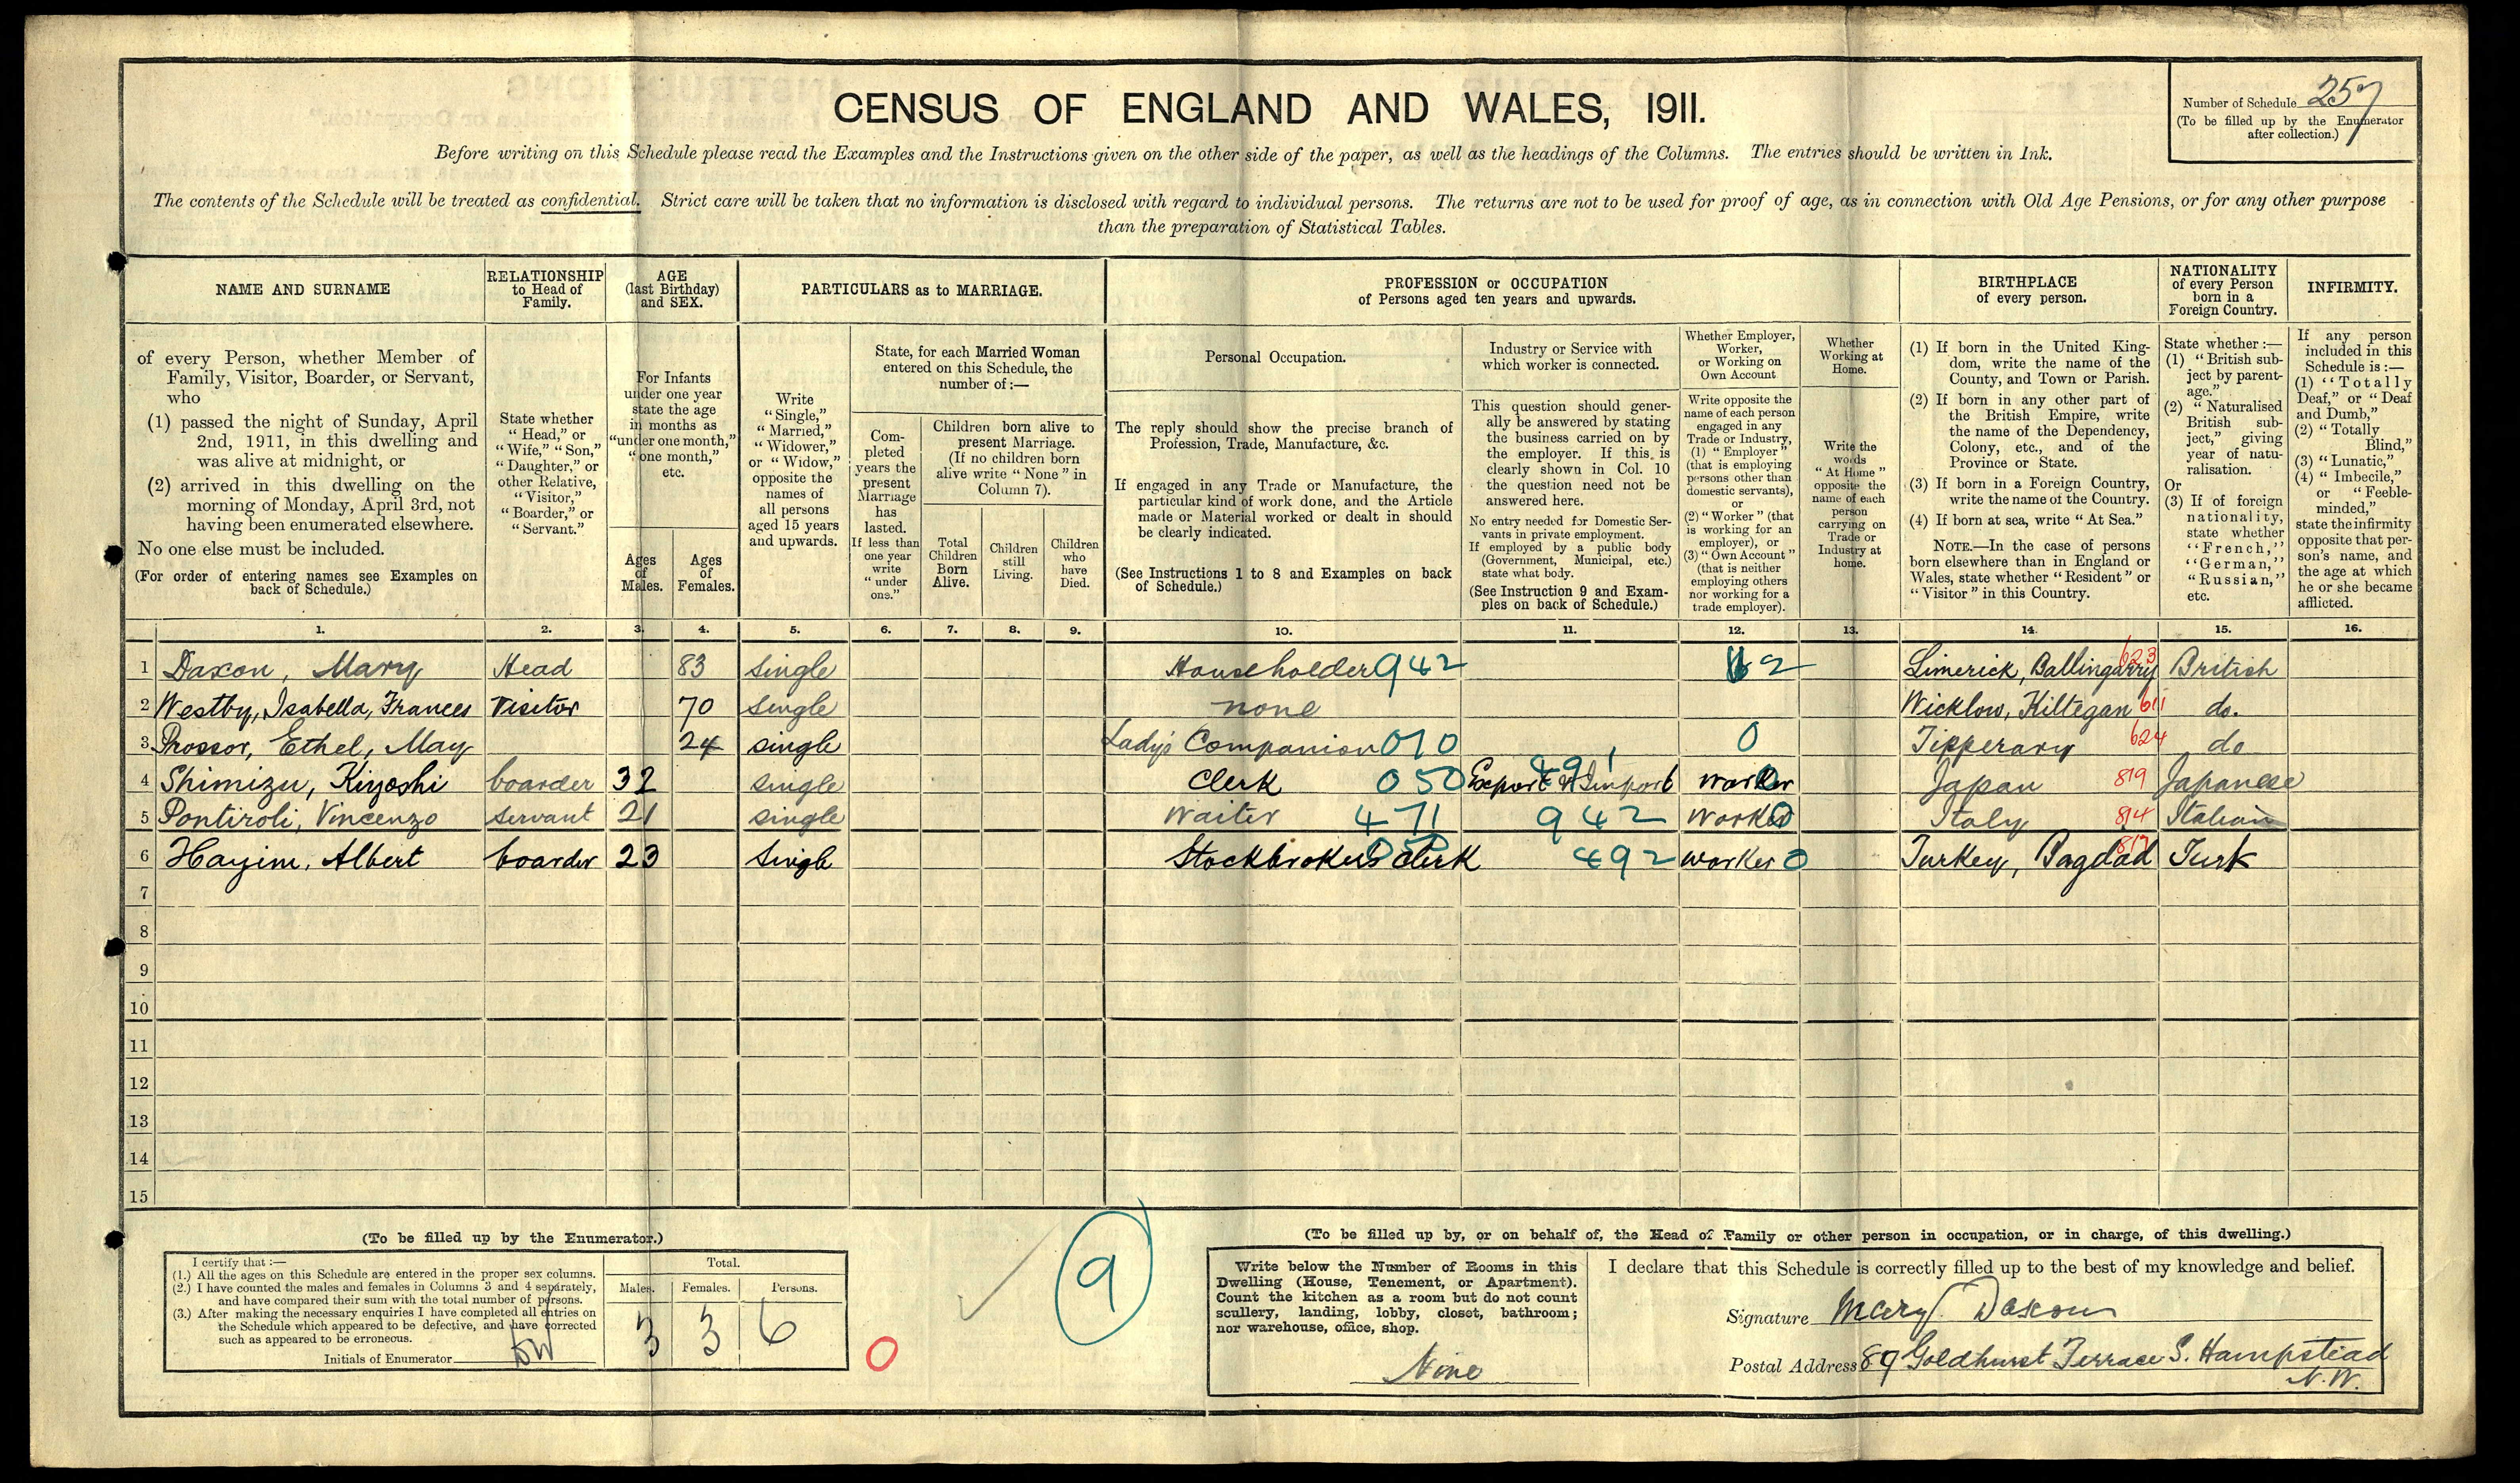 CENSUS OF ENGLAND AND WALES, 1911.
Number of Schedule 257
(To be filled up by the Enumerator
after collection.)
Before writing on this Schedule please read the Examples and the Instructions given on the other side of the paper, as well as the headings of the Columns. The entries should be written in Ink.
The contents of the Schedule will be treated as confidential. Strict care will be taken that no information is disclosed with regard to individual persons. The returns are not to be used for proof of age, as in connection with Old Age Pensions, or for any other purpose
than the preparation of Statistical Tables.
NAME AND SURNAME
RELATIONSHIP
to Head of
Family.
AGE
(last Birthday)
and SEX.
PARTICULARS as to MARRIAGE.
PROFESSION or OCCUPATION
of Persons aged ten years and upwards.
BIRTHPLACE
of every person.
NATIONALITY
of every Person
born in a
Foreign Country.
INFIRMITY.
of every Person, whether Member of
Family, Visitor, Boarder, or Servant,
who
(1) passed the night of Sunday, April
2nd, 1911, in this dwelling and
was alive at midnight, or
(2) arrived in this dwelling on the
morning of Monday, April 3rd, not
having been enumerated elsewhere.
No one else must be included.
(For order of entering names see Examples on
back of Schedule.)
State whether
"Head," or
"Wife," "Son,"
"Daughter," or
other Relative,
"Visitor,"
"Boarder," or
"Servant."
For Infants
under one year
state the age
in months as
"under one month,"
"one month,"
etc.
Ages
of
Males.
Ages
of
Females.
Write
"Single,"
"Married,"
"Widower,"
or "Widow,"
opposite the
names of
all persons
aged 15 years
and upwards.
State, for each Married Woman
entered on this Schedule, the
number of:—
Com-
pleted
years the
present
Marriage
has
lasted.
If less than
one year
write
"under
one."
Children born alive to
present Marriage.
(If no children born
alive write "None" in
Column 7).
Total
Children
Born
Alive.
Children
still
Living.
Children
who
have
Died.
Personal Occupation.
The reply should show the precise branch of
Profession, Trade, Manufacture, &c.
If engaged in any Trade or Manufacture, the
particular kind of work done, and the Article
made or Material worked or dealt in should
be clearly indicated.
(See Instructions 1 to 8 and Examples on back
of Schedule.)
Industry or Service with
which worker is connected.
This question should gener-
ally be answered by stating
the business carried on by
the employer. If this is
clearly shown in Col. 10
the question need not be
answered here.
No entry needed for Domestic Ser-
vants in private employment.
If employed by a public body
(Government, Municipal, etc.)
state what body.
(See Instruction 9 and Exam-
ples on back of Schedule.)
Whether Employer,
Worker,
or Working on
Own Account
Write opposite the
name of each person
engaged in any
Trade or Industry,
(1) "Employer"
(that is employing
persons other than
domestic servants),
or
(2) "Worker" (that
is working for an
employer), or
(3) "Own Account"
(that is neither
employing others
nor working for a
trade employer).
Whether
Working at
Home.
Write the
words
"At Home"
opposite the
name of each
person
carrying on
Trade or
Industry at
home.
(1) If born in the United King-
dom, write the name of the
County, and Town or Parish.
(2) If born in any other part of
the British Empire, write
the name of the Dependency,
Colony, etc., and of the
Province or State.
(3) If born in a Foreign Country,
write the name of the Country.
(4) If born at sea, write "At Sea."
NOTE.—In the case of persons
born elsewhere than in England or
Wales, state whether "Resident" or
"Visitor" in this Country.
State whether:—
(1) "British sub-
ject by parent-
age."
(2) "Naturalised
British sub-
ject," giving
year of natu-
ralisation.
Or
(3) If of foreign
nationality,
state whether
"French,"
"German,"
"Russian,"
etc.
If any person
included in this
Schedule is:—
(1) "Totally
Deaf," or "Deaf
and Dumb,"
(2) "Totally
Blind,"
(3) "Lunatic,"
(4) "Imbecile,"
or "Feeble-
minded,"
state the infirmity
opposite that per-
son's name, and
the age at which
he or she became
afflicted.
1. 2. 3. 4. 5. 6. 7. 8. 9. 10. 11. 12. 13. 14. 15. 16.
1 Daxon, Mary Head 83 Single Householder 942 2 Limerick, Ballingarry 623 British
2 Westby, Isabella, Frances Visitor 70 Single none Wicklow, Kiltegan 611 do.
3 Prossor, Ethel, May 24 single Lady's Companion 010 0 Tipperary 624 do
4 Shimizu, Kiyoshi boarder 32 single Clerk 050 Export & Import 491 Worker 0 Japan 819 Japanese
5 Pontiroli, Vincenzo servant 21 single Waiter 471 942 Worker 0 Italy 814 Italian
6 Hayim, Albert boarder 23 Single Stockbrokers clerk 050 492 worker 0 Turkey, Bagdad 817 Turk
7
8
9
10
11
12
13
14
15
(To be filled up by the Enumerator.)
I certify that:—
(1.) All the ages on this Schedule are entered in the proper sex columns.
(2.) I have counted the males and females in Columns 3 and 4 separately,
and have compared their sum with the total number of persons.
(3.) After making the necessary enquiries I have completed all entries on
the Schedule which appeared to be defective, and have corrected
such as appeared to be erroneous.
Initials of Enumerator
Total.
Males. Females. Persons.
3 3 6
0
9
(To be filled up by, or on behalf of, the Head of Family or other person in occupation, or in charge, of this dwelling.)
Write below the Number of Rooms in this
Dwelling (House, Tenement, or Apartment).
Count the kitchen as a room but do not count
scullery, landing, lobby, closet, bathroom;
nor warehouse, office, shop.
Nine
I declare that this Schedule is correctly filled up to the best of my knowledge and belief.
Signature Mary Daxon
Postal Address 89 Goldhurst Terrace S. Hampstead
N.W.